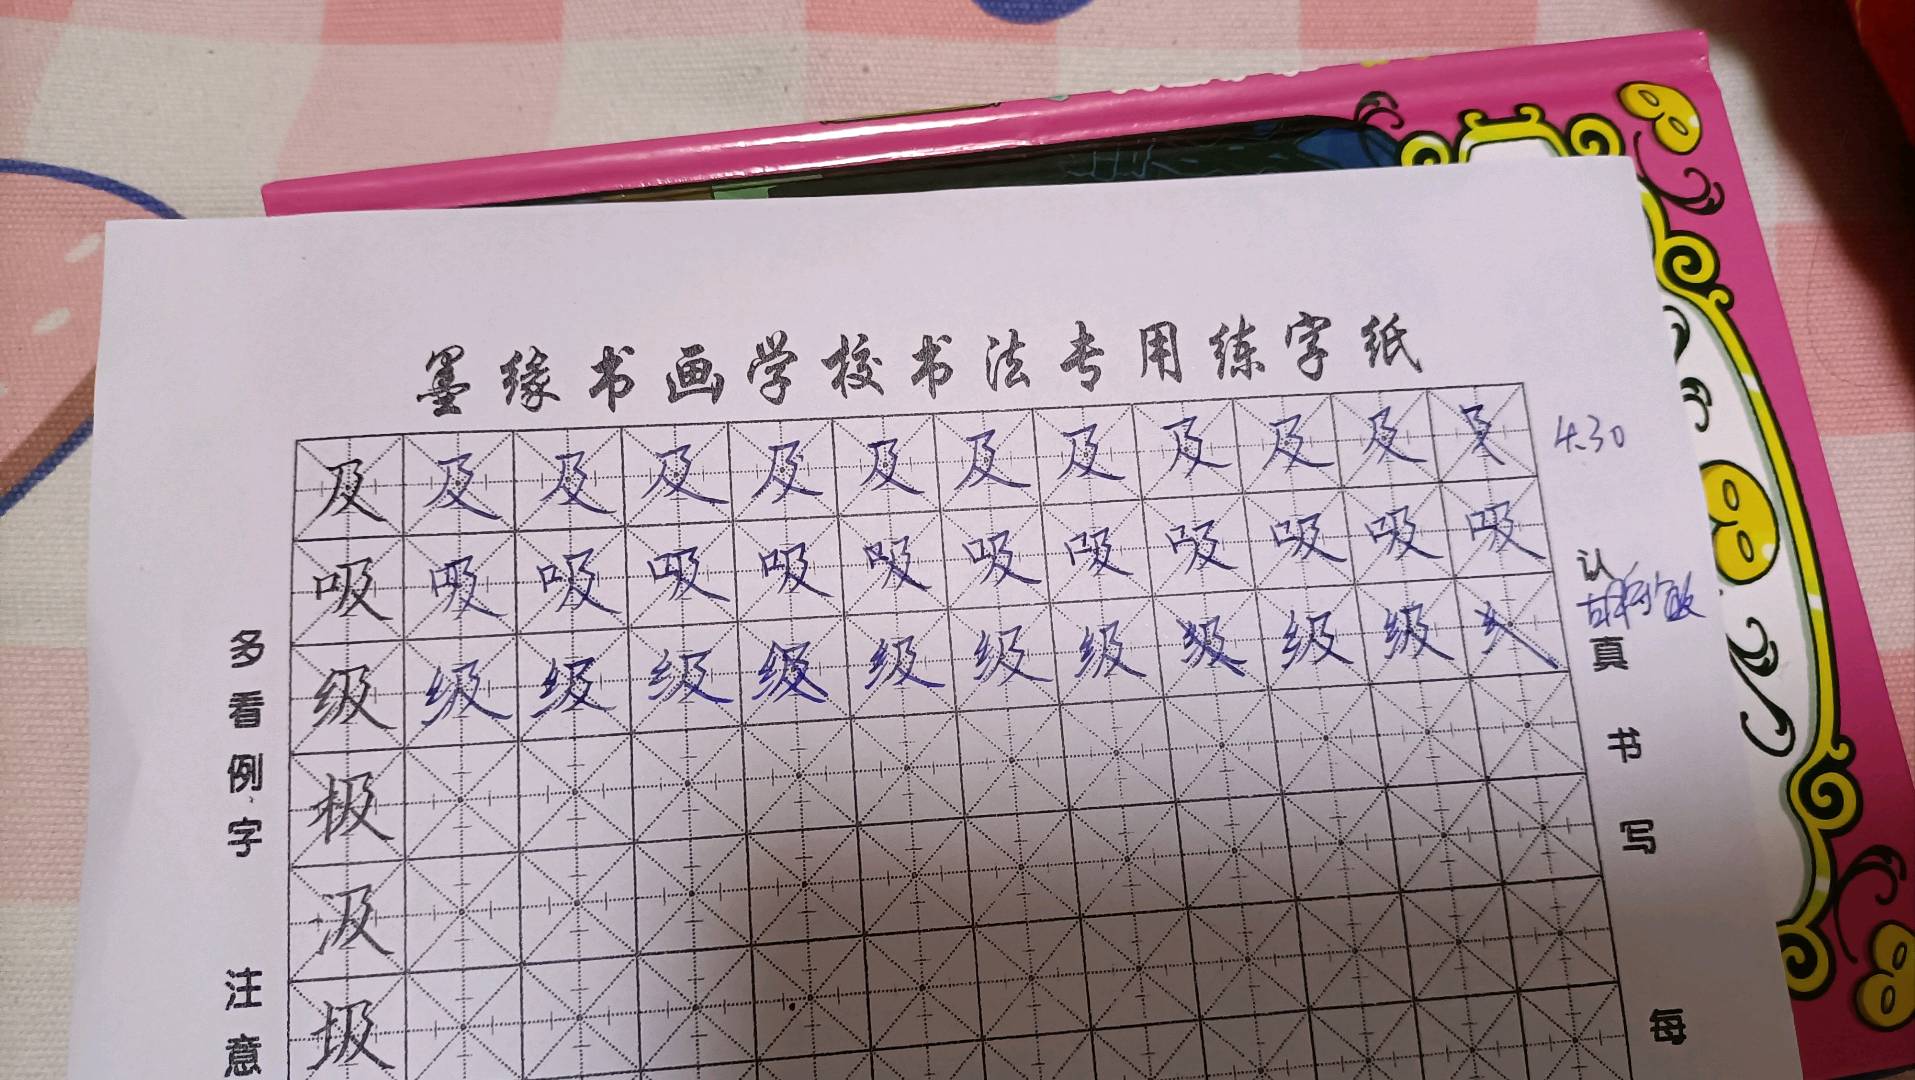 墨缘书画学校书法专用练字纸
及及及及及及及及及及及及
4.30
吸吸吸吸吸吸吸吸吸吸吸吸
级级级级级级级级级级级
极
汲
圾
多看例字
注意
认真书写
每